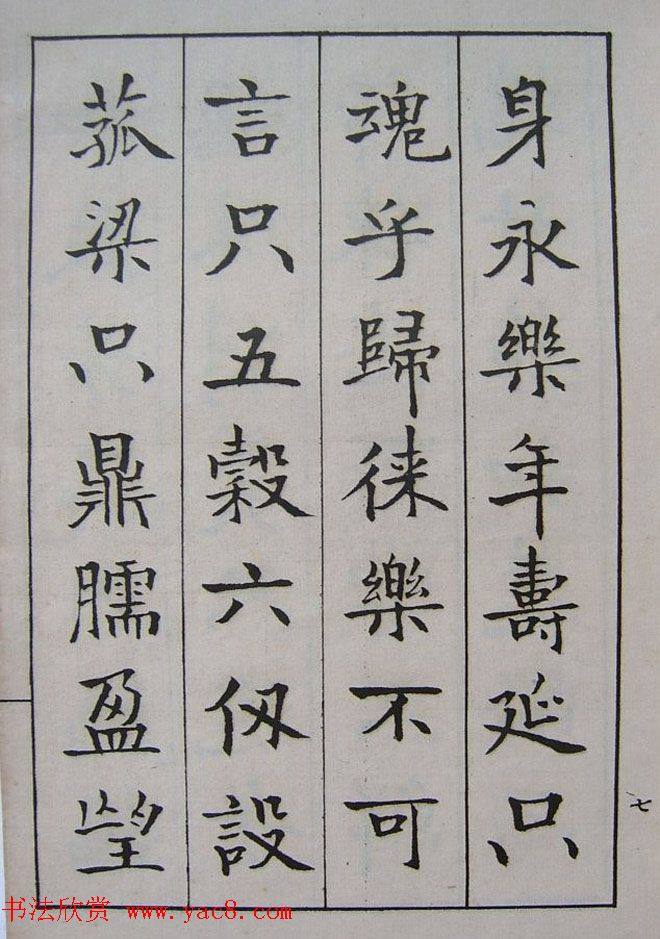 身永樂年壽延只
魂乎歸徠樂不可
言只五穀六仞設
菰梁只鼎臑盈望
七
书法欣赏 www.yac8.com